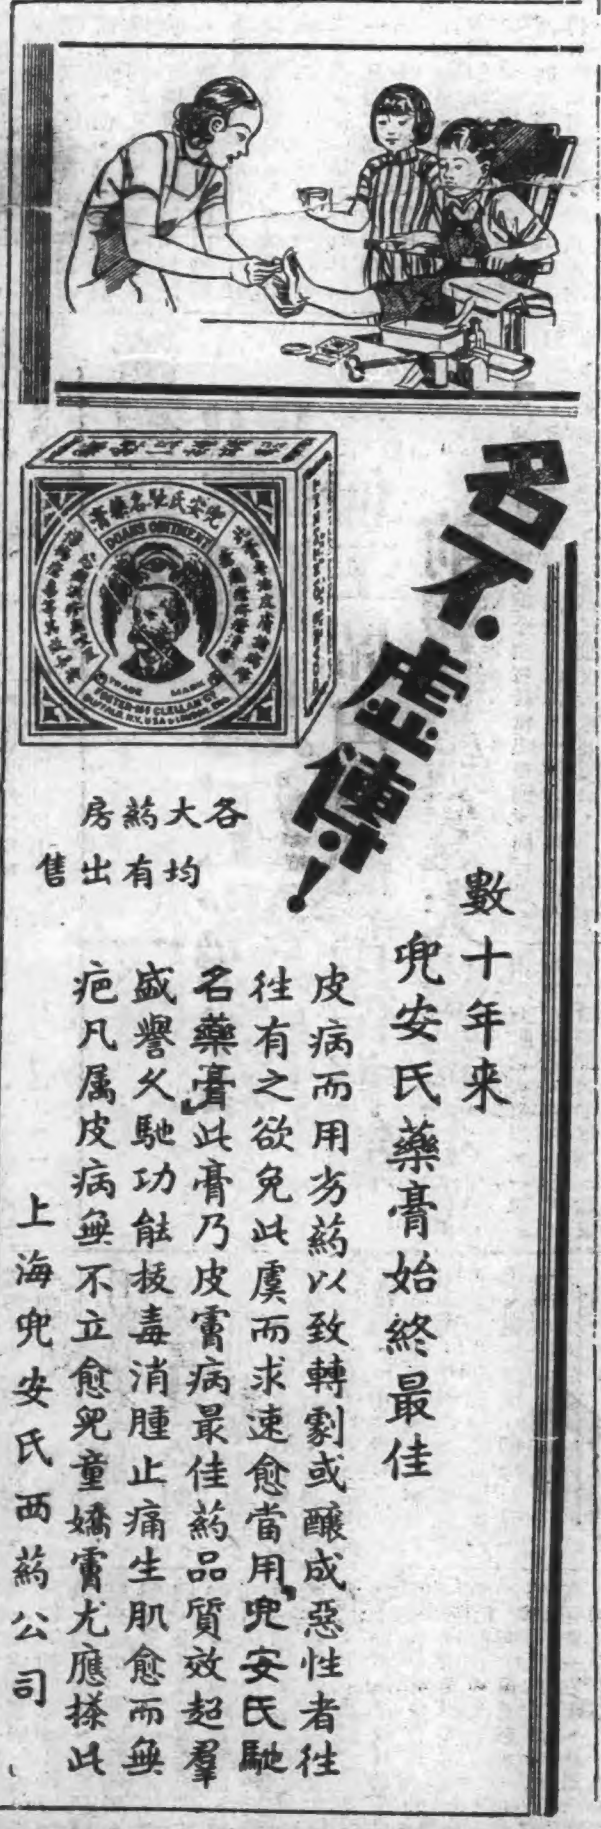 名不虛傳！
數十年来
兜安氏藥膏始終最佳
皮病而用劣葯以致轉劇或釀成惡性者徃
徃有之欲免此虞而求速愈當用『兜安氏馳
名藥膏』此膏乃皮膚病最佳葯品質效超羣
盛譽久馳功能拔毒消腫止痛生肌愈而無
疤凡属皮病無不立愈兒童嬌膚尤應搽此
上海兜安氏西葯公司
各大葯房
均有出售
兜安氏馳名藥膏
DOAN'S OINTMENT
TRADE MARK
FOSTER-McCLELLAN CO
BUFFALO N.Y. USA